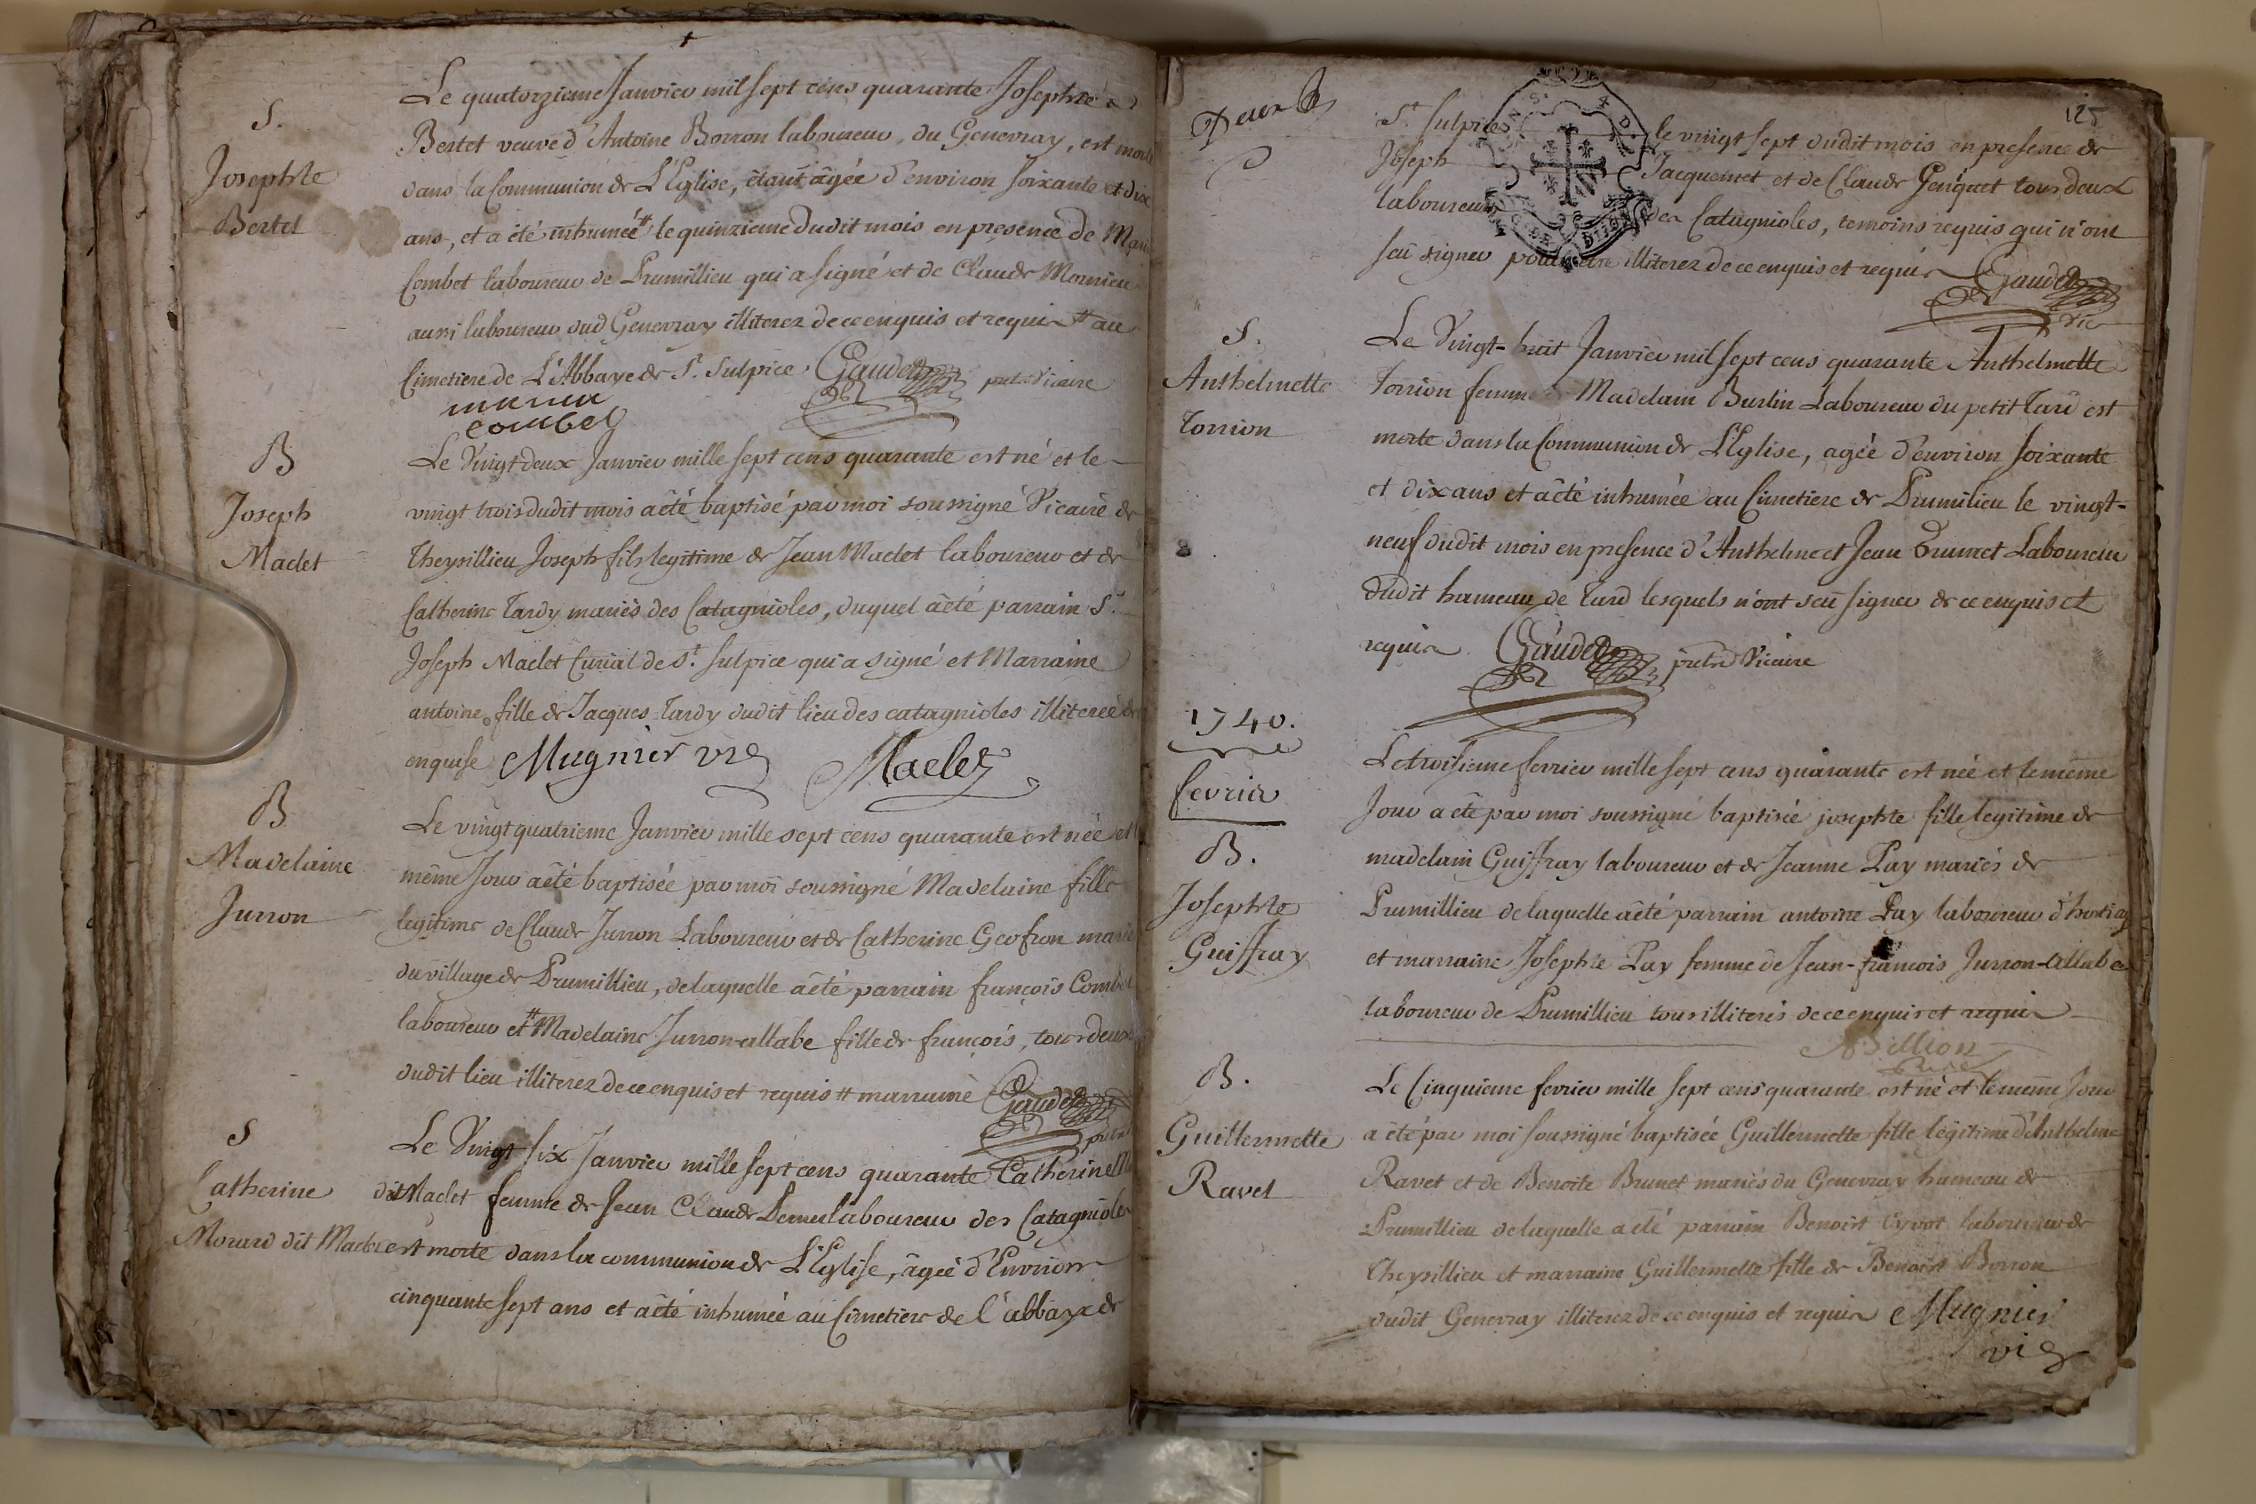 S.
Josephte
Bertet
Le quatorzieme Janvier mil sept cens quarante Josephte
Bertet veuve d'Antoine Borron laboureur, du Genevray, est morte
dans la Communion de L'Eglise, étant âgée d'environ soixante et dix
ans, et a été inhumée # le quinzieme dudit mois en presence de
Combet laboureur de Prumillieu qui a signé et de Claude Mounieu
aussi laboureur dud Genevray illiterez de ce enquis et requis # au
Cimetiere de L'Abbaye de St. Sulpice. Gaudet pretre vicaire
combet
B
Joseph
Maclet
Le Vingt deux Janvier mille sept cens quarante est né et le
vingt trois dudit mois a été baptisé par moi soussigné Vicaire de
Theysillieu Joseph fils legitime de Jean Maclet laboureur et de
Catherine Tardy mariés des Catagnioles, duquel a été parrain Sr.
Joseph Maclet Curial de St. Sulpice qui a signé et Marraine
antoine fille de Jacques Tardy dudit lieu des catagnioles illiterée de
enquise Mugnier vic Maclet
B
Madelaine
Jurron
Le vingt quatrieme Janvier mille sept cens quarante est née et
même Jour a été baptisée par moi soussigné Madelaine fille
legitime de Claude Jurron Laboureur et de Catherine Geofron mariés
du village de Prumillieu, de laquelle a été parrain françois Combet
laboureur et # Madelaine Jurron-allabe fille de françois, tous deux
dudit lieu illiterez de ce enquis et requis # marraine Gaudet
pretre
S
Catherine
Morard dit Maclet
Le Vingt six Janvier mille sept cens quarante Catherine
dit Maclet femme de Jean Claude laboureur des Catagnioles
est morte dans la communion de L'Eglise, âgée d'Environ
cinquante sept ans et a été inhumée au Cimetiere de l'abbaye de
125
St. Sulpice le vingt sept dudit mois en presence de
Joseph Jacquemet et de Claude Genquet tous deux
laboureurs des Catagnioles, temoins requis qui n'ont
sçu signer pour etre illiterez de ce enquis et requis Gaudet
vic
S.
Anthelmette
Torrion
Le Vingt-huit Janvier mil sept cens quarante Anthelmette
Torrion femme de Madelain Burlin Laboureur du petit Tard est
morte dans la Communion de L'Eglise, agée d'environ soixante
et dix ans et a été inhumée au Cimetiere de Prumilieu le vingt-
neuf dudit mois en presence d'Anthelme et Jean Brunet Laboureur
dudit hameau de Tard lesquels n'ont sçu signer de ce enquis et
requis Gaudet pretre Vicaire
1740.
fevrier
B.
Josephte
Guiffray
Le troisieme fevrier mille sept cens quarante est née et le même
Jour a été par moi soussigné baptisée josephte fille legitime de
madelain Guiffray laboureur et de Jeanne Pay mariés de
Prumillieu de laquelle a été parrain antoine Pay laboureur
et marraine Josephte Pay femme de Jean-françois Jurron-allabe
laboureur de Prumillieu tous illiterés de ce enquis et requis
Billion
B.
Guillermette
Ravet
Le Cinquieme fevrier mille sept cens quarante est né et le même Jour
a été par moi soussigné baptisée Guillermette fille légitime d'Anthelme
Ravet et de Benoite Brunet mariés du Genevray hameau de
Prumillieu de laquelle a été parrain Benoist laboureur de
Theysillieu et marraine Guillermette fille de Benoist Borron
dudit Genevray illiterez de ce enquis et requis Mugnier
vic